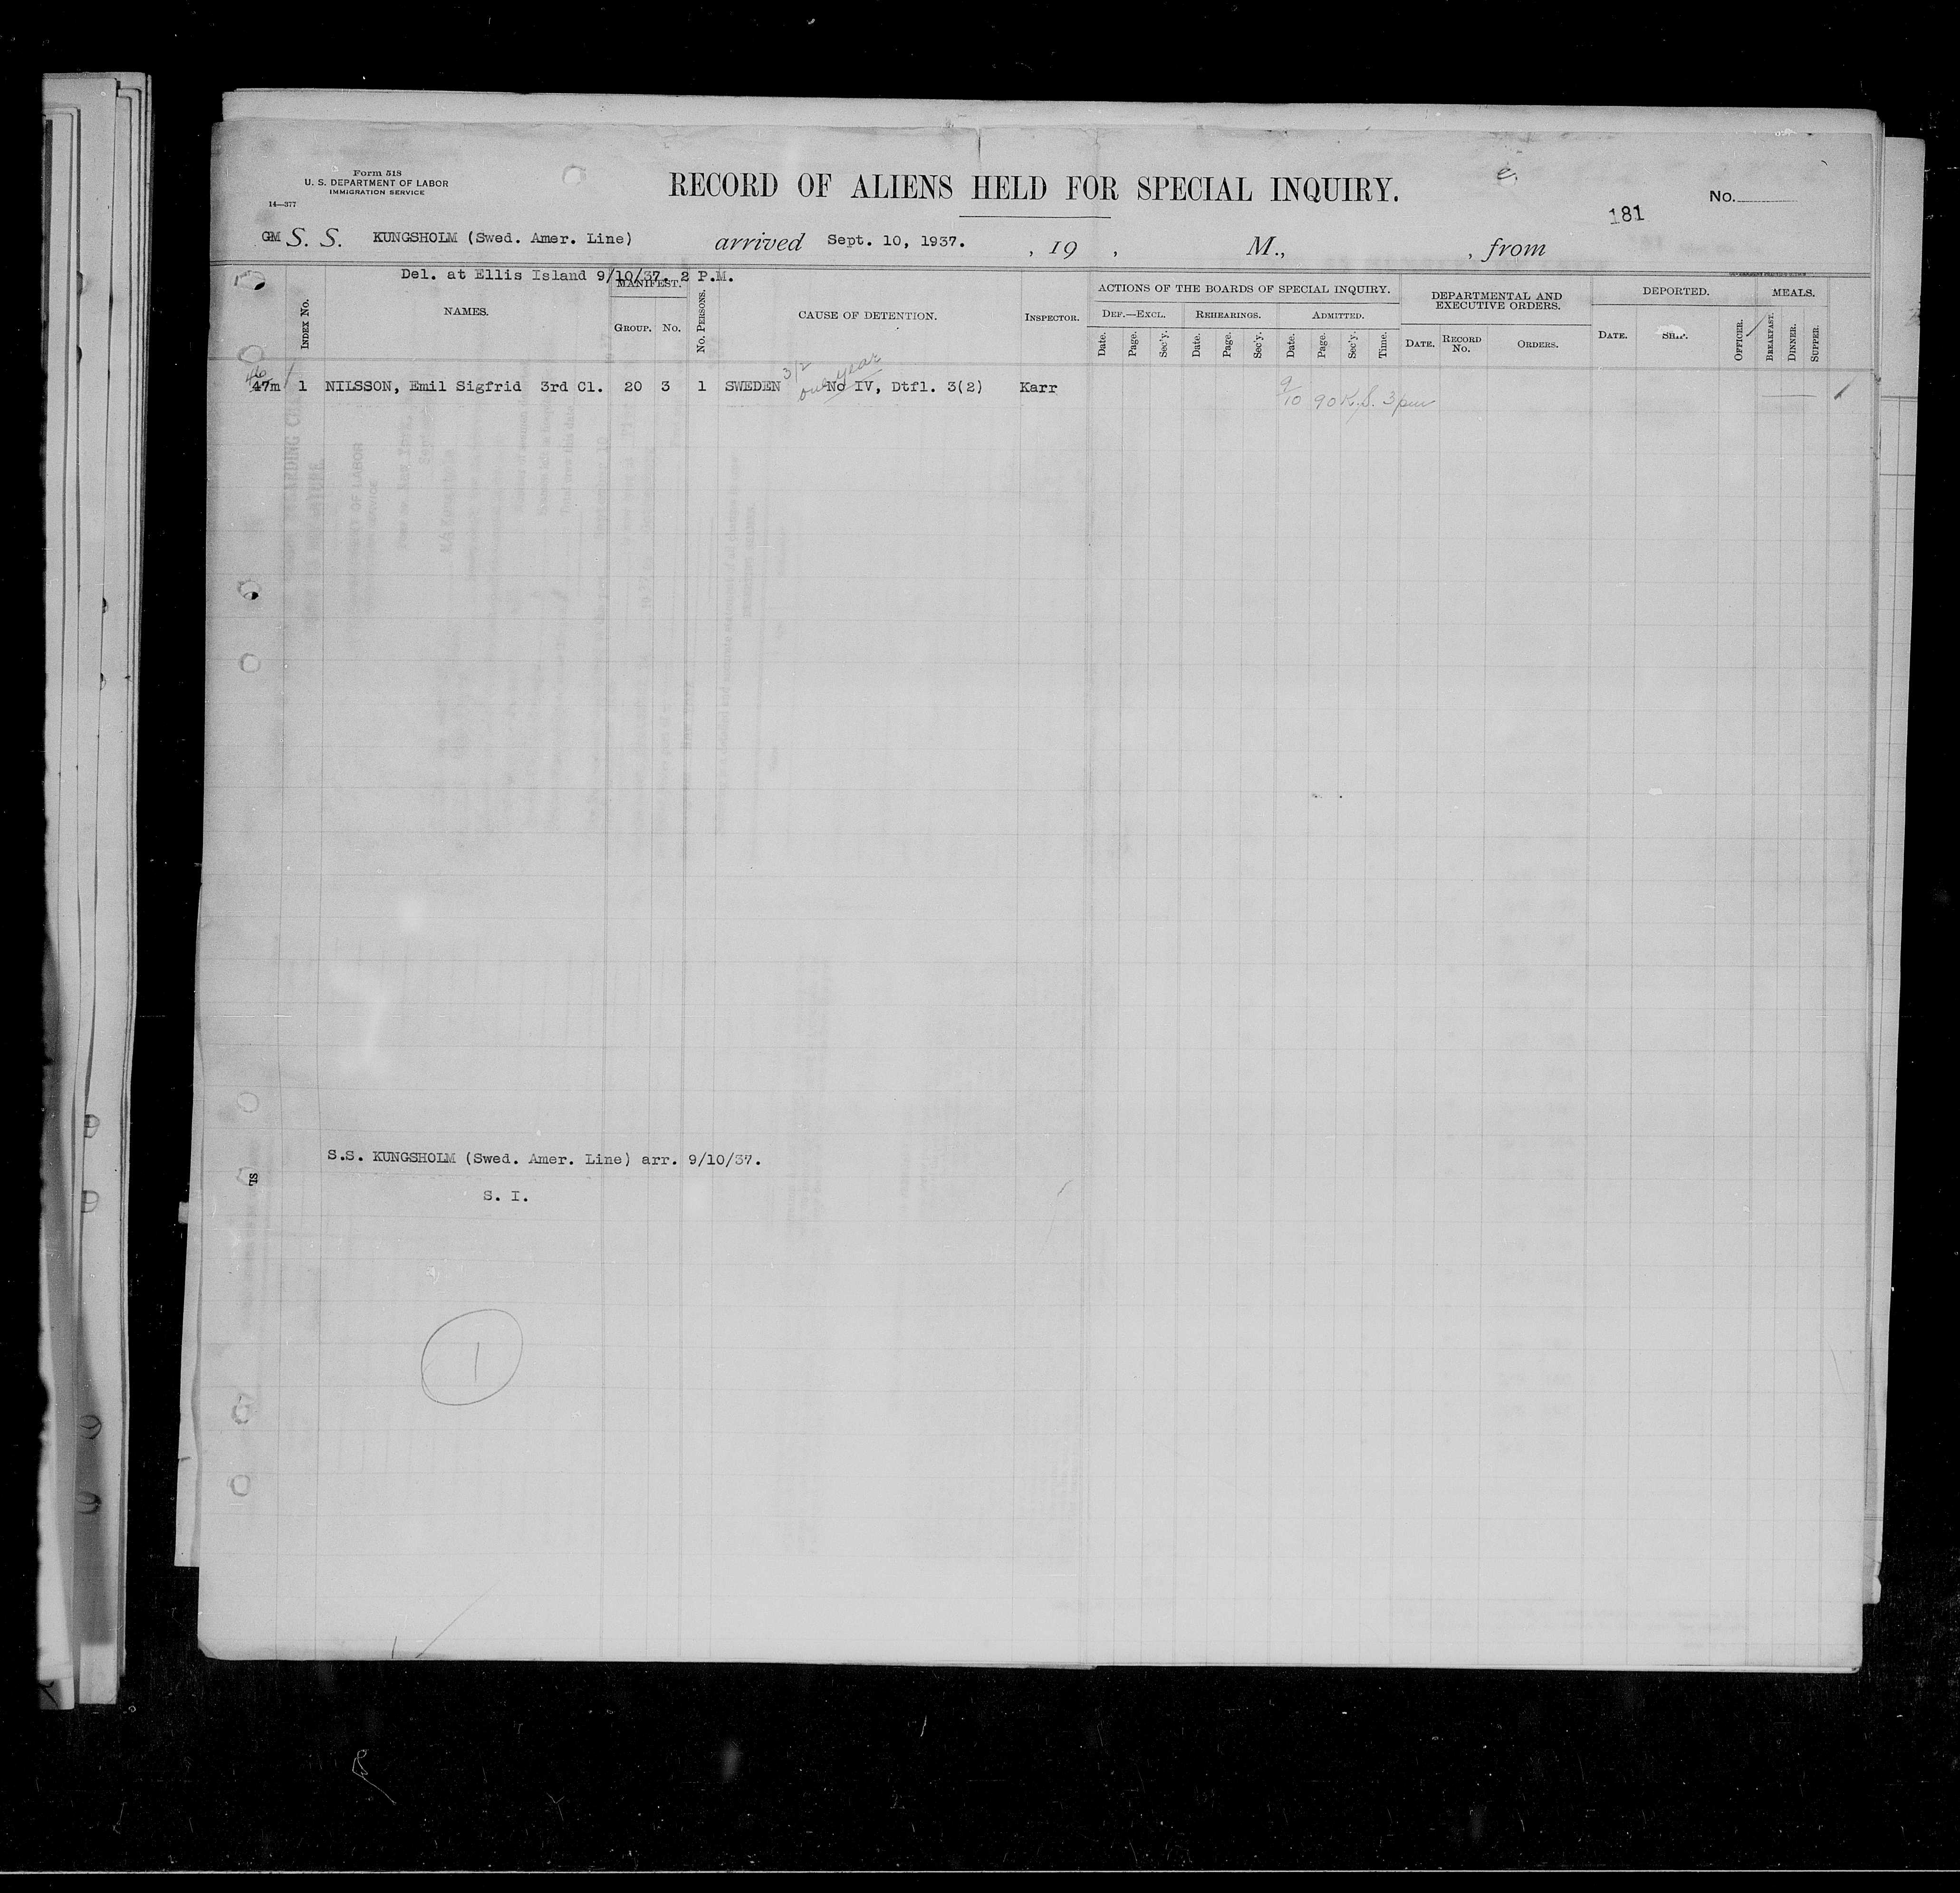 Form 518
U. S. DEPARTMENT OF LABOR
IMMIGRATION SERVICE
14—377
RECORD OF ALIENS HELD FOR SPECIAL INQUIRY.
No.
181
GM S. S. KUNGSHOLM (Swed. Amer. Line) arrived Sept. 10, 1937. , 19 , M., , from
Del. at Ellis Island 9/10/37. 2 P.M.
INDEX No.
NAMES.
MANIFEST.
GROUP. No.
No. PERSONS.
CAUSE OF DETENTION.
INSPECTOR.
ACTIONS OF THE BOARDS OF SPECIAL INQUIRY.
DEF.—EXCL. REHEARINGS. ADMITTED.
Date. Page. Sec'y. Date. Page. Sec'y. Date. Page. Sec'y. Time.
DEPARTMENTAL AND
EXECUTIVE ORDERS.
DATE. RECORD No. ORDERS.
DEPORTED.
DATE. SHIP. OFFICER.
MEALS.
BREAKFAST. DINNER. SUPPER.
3/2 one year
46
47m 1 NILSSON, Emil Sigfrid 3rd Cl. 20 3 1 SWEDEN No IV, Dtfl. 3(2) Karr 9/10 90 K.S. 3 pm
S.S. KUNGSHOLM (Swed. Amer. Line) arr. 9/10/37.
S. I.
1